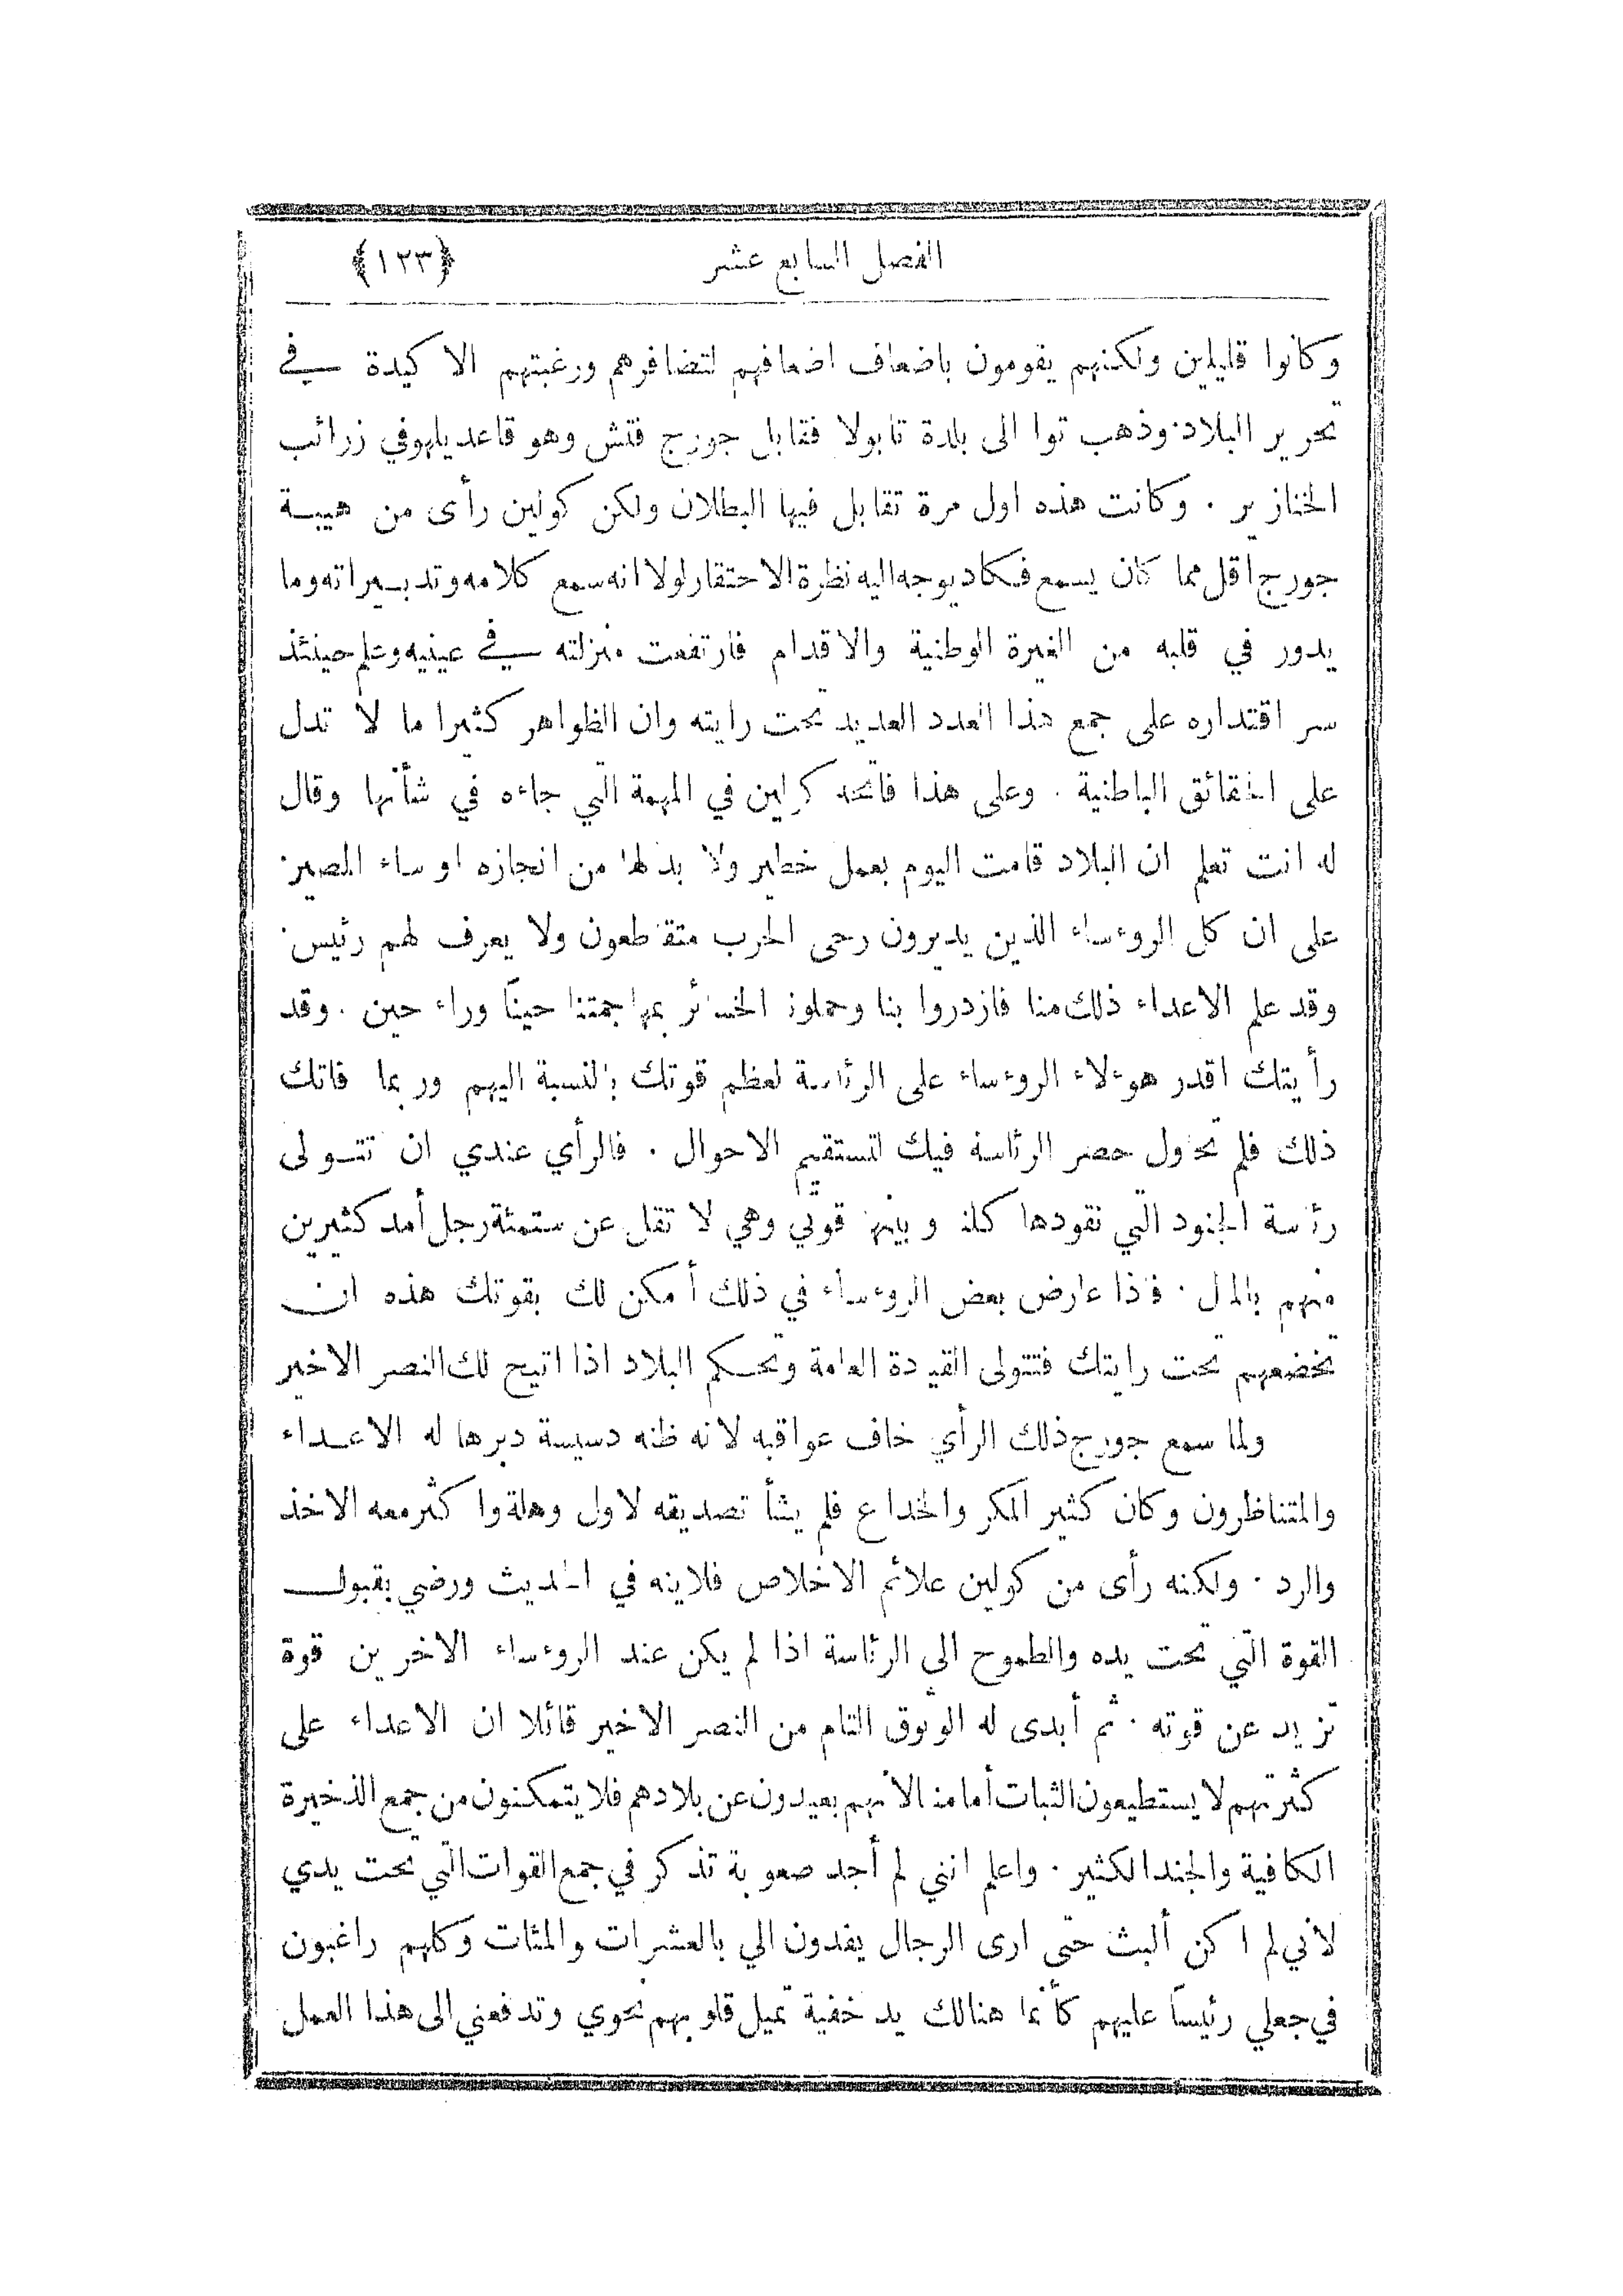 الفصل السابع عشر ﴿١٢٣﴾
وكانوا قليلين ولكنهم يقومون باضعاف اضعافهم لتضافرهم ورغبتهم الاكيدة في
تحرير البلاد٠وذهب توا الى بلدة تابولا فقابل جورج فتش وهو قاعد يلهوفي زرائب
الخنازير ٠ وكانت هذه اول مرة تقابل فيها البطلان ولكن كولين رأى من هيبة
جورج اقل مما كان يسمع فكاد يوجه اليه نظرة الاحتقار لولا انه سمع كلامه وتدبيراته وما
يدور في قلبه من الغيرة الوطنية والاقدام فارتفعت منزلته في عينيه وعلم حينئذ
سر اقتداره على جمع هذا العدد العديد تحت رايته وان الظواهر كثيرا ما لا تدل
على الحقائق الباطنية ٠ وعلى هذا فاتحه كولين في المهمة التي جاءه في شأنها وقال
له انت تعلم ان البلاد قامت اليوم بعمل خطير ولا بد لها من انجازه او ساء المصير٠
على ان كل الروءساء الذين يديرون رحى الحرب متقاطعون ولا يعرف لهم رئيس٠
وقد علم الاعداء ذلك منا فازدروا بنا وحملونا الخسائر بمهاجمتنا حيناً وراء حين ٠ وقد
رأيتك اقدر هوءلاء الروءساء على الرئاسة لعظم قوتك بالنسبة اليهم وربما فاتك
ذلك فلم تحاول حصر الرئاسة فيك لتستقيم الاحوال ٠ فالرأي عندي ان تتولى
رئاسة الجنود التي نقودها كلنا وبينها قوتي وهي لا تقل عن ستمئة رجل أمد كثيرين
منهم بالمال ٠ فاذا عارض بعض الروءساء في ذلك أمكن لك بقوتك هذه ان
تخضعهم تحت رايتك فتتولى القيادة العامة وتحكم البلاد اذا اتيح لك النصر الاخير
ولما سمع جورج ذلك الرأي خاف عواقبه لانه ظنه دسيسة دبرها له الاعداء
والمتناظرون وكان كثير المكر والخداع فلم يشأ تصديقه لاول وهلة واكثر معه الاخذ
والرد ٠ ولكنه رأى من كولين علائم الاخلاص فلاينه في الحديث ورضي بقبول
القوة التي تحت يده والطموح الى الرئاسة اذا لم يكن عند الروءساء الاخرين قوة
تزيد عن قوته ٠ ثم أبدى له الوثوق التام من النصر الاخير قائلا ان الاعداء على
كثرتهم لا يستطيعون الثبات أمامنا لانهم بعيدون عن بلادهم فلا يتمكنون من جمع الذخيرة
الكافية والجند الكثير ٠ واعلم انني لم أجد صعوبة تذكر في جمع القوات التي تحت يدي
لاني لم اكن ألبث حتى ارى الرجال يفدون الي بالعشرات والمئات وكلهم راغبون
في جعلي رئيساً عليهم كأنما هنالك يد خفية تميل قلوبهم نحوي وتدفعني الى هذا العمل